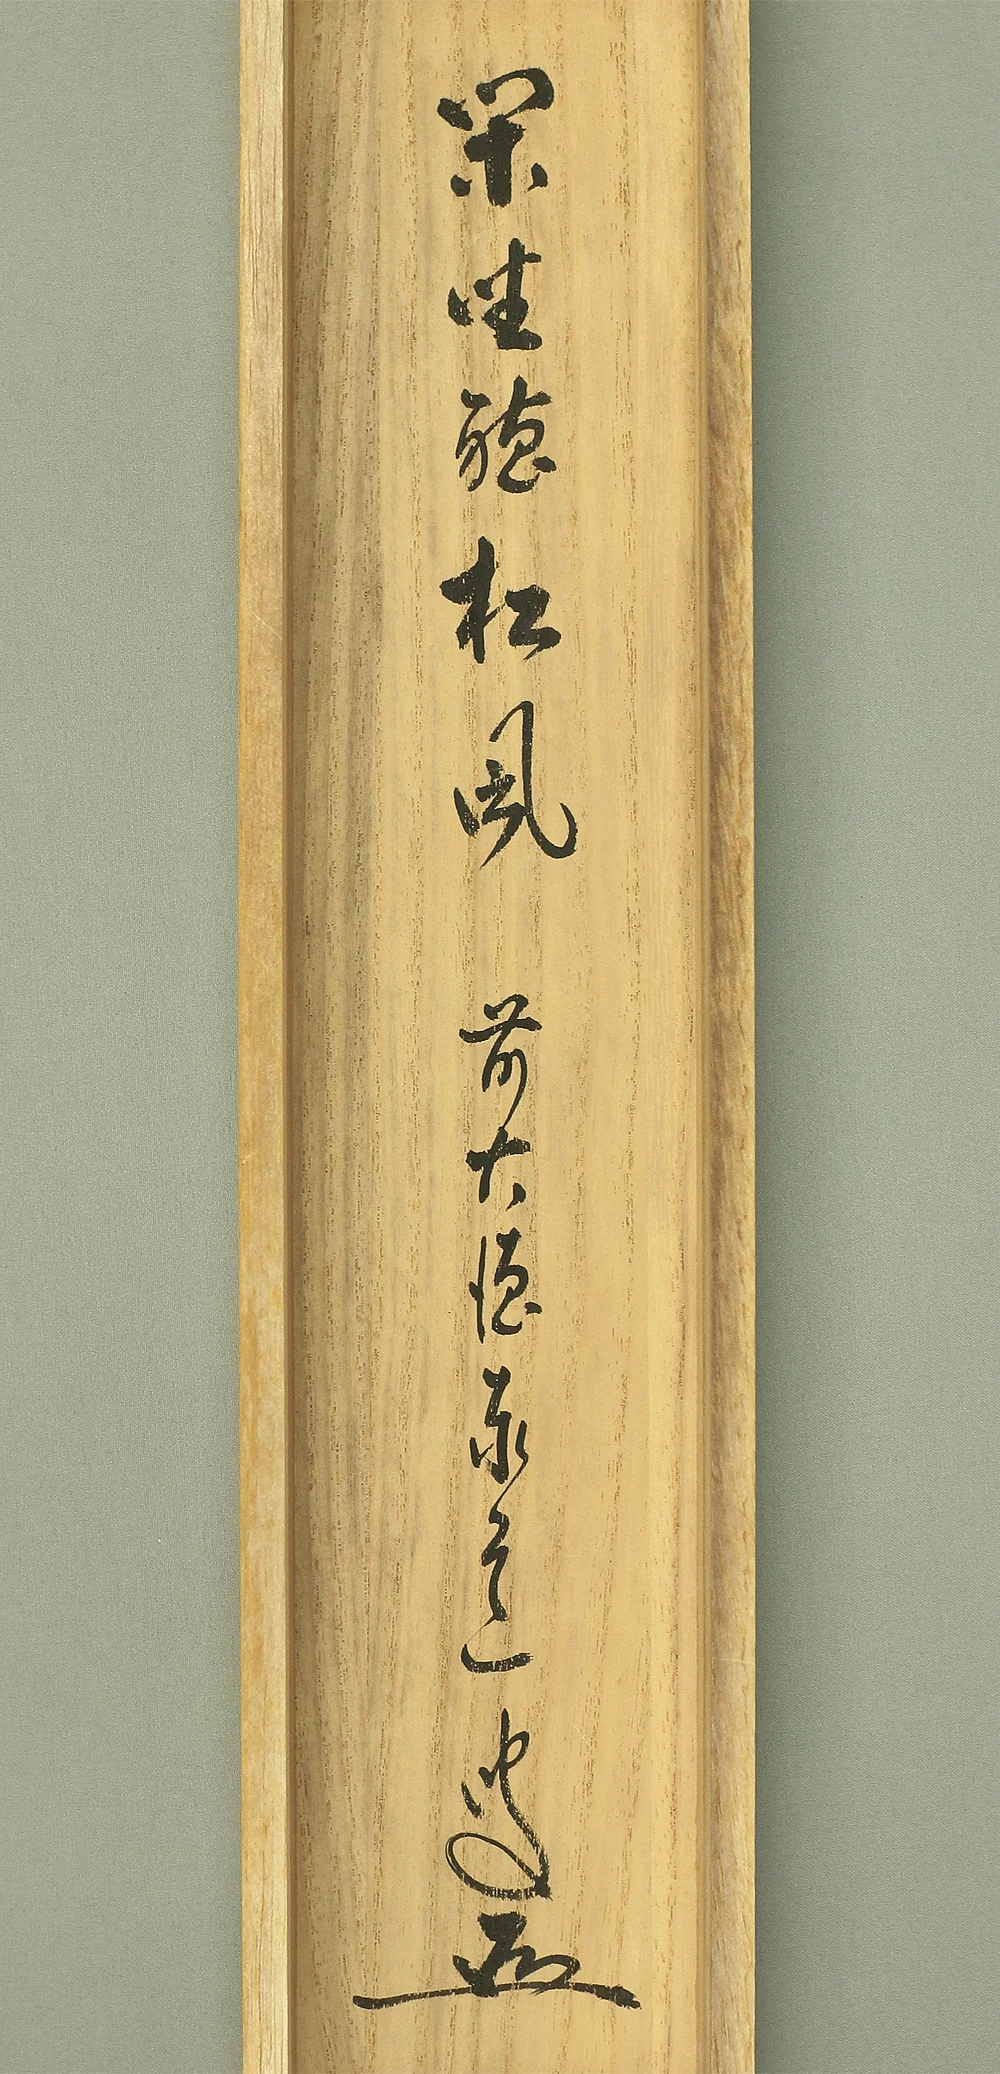 閑坐聴松風 前大徳泰道